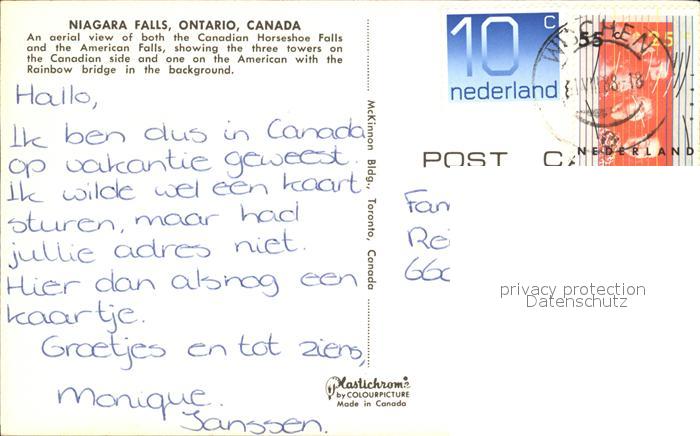 NIAGARA FALLS, ONTARIO, CANADA
An aerial view of both the Canadian Horseshoe Falls
and the American Falls, showing the three towers on
the Canadian side and one on the American with the
Rainbow bridge in the background.
Hallo,
Ik ben dus in Canada
op vakantie geweest.
Ik wilde wel een kaart
sturen, maar had
jullie adres niet.
Hier dan alsnog een
kaartje.
Groetjes en tot ziens,
Monique
Janssen.
McKinnon Bldg., Toronto, Canada
Plastichrome
by COLOURPICTURE
Made in Canada
10 c
nederland
55 c + 25 c
NEDERLAND
POST CA
Fam
Rei
660
privacy protection
Datenschutz